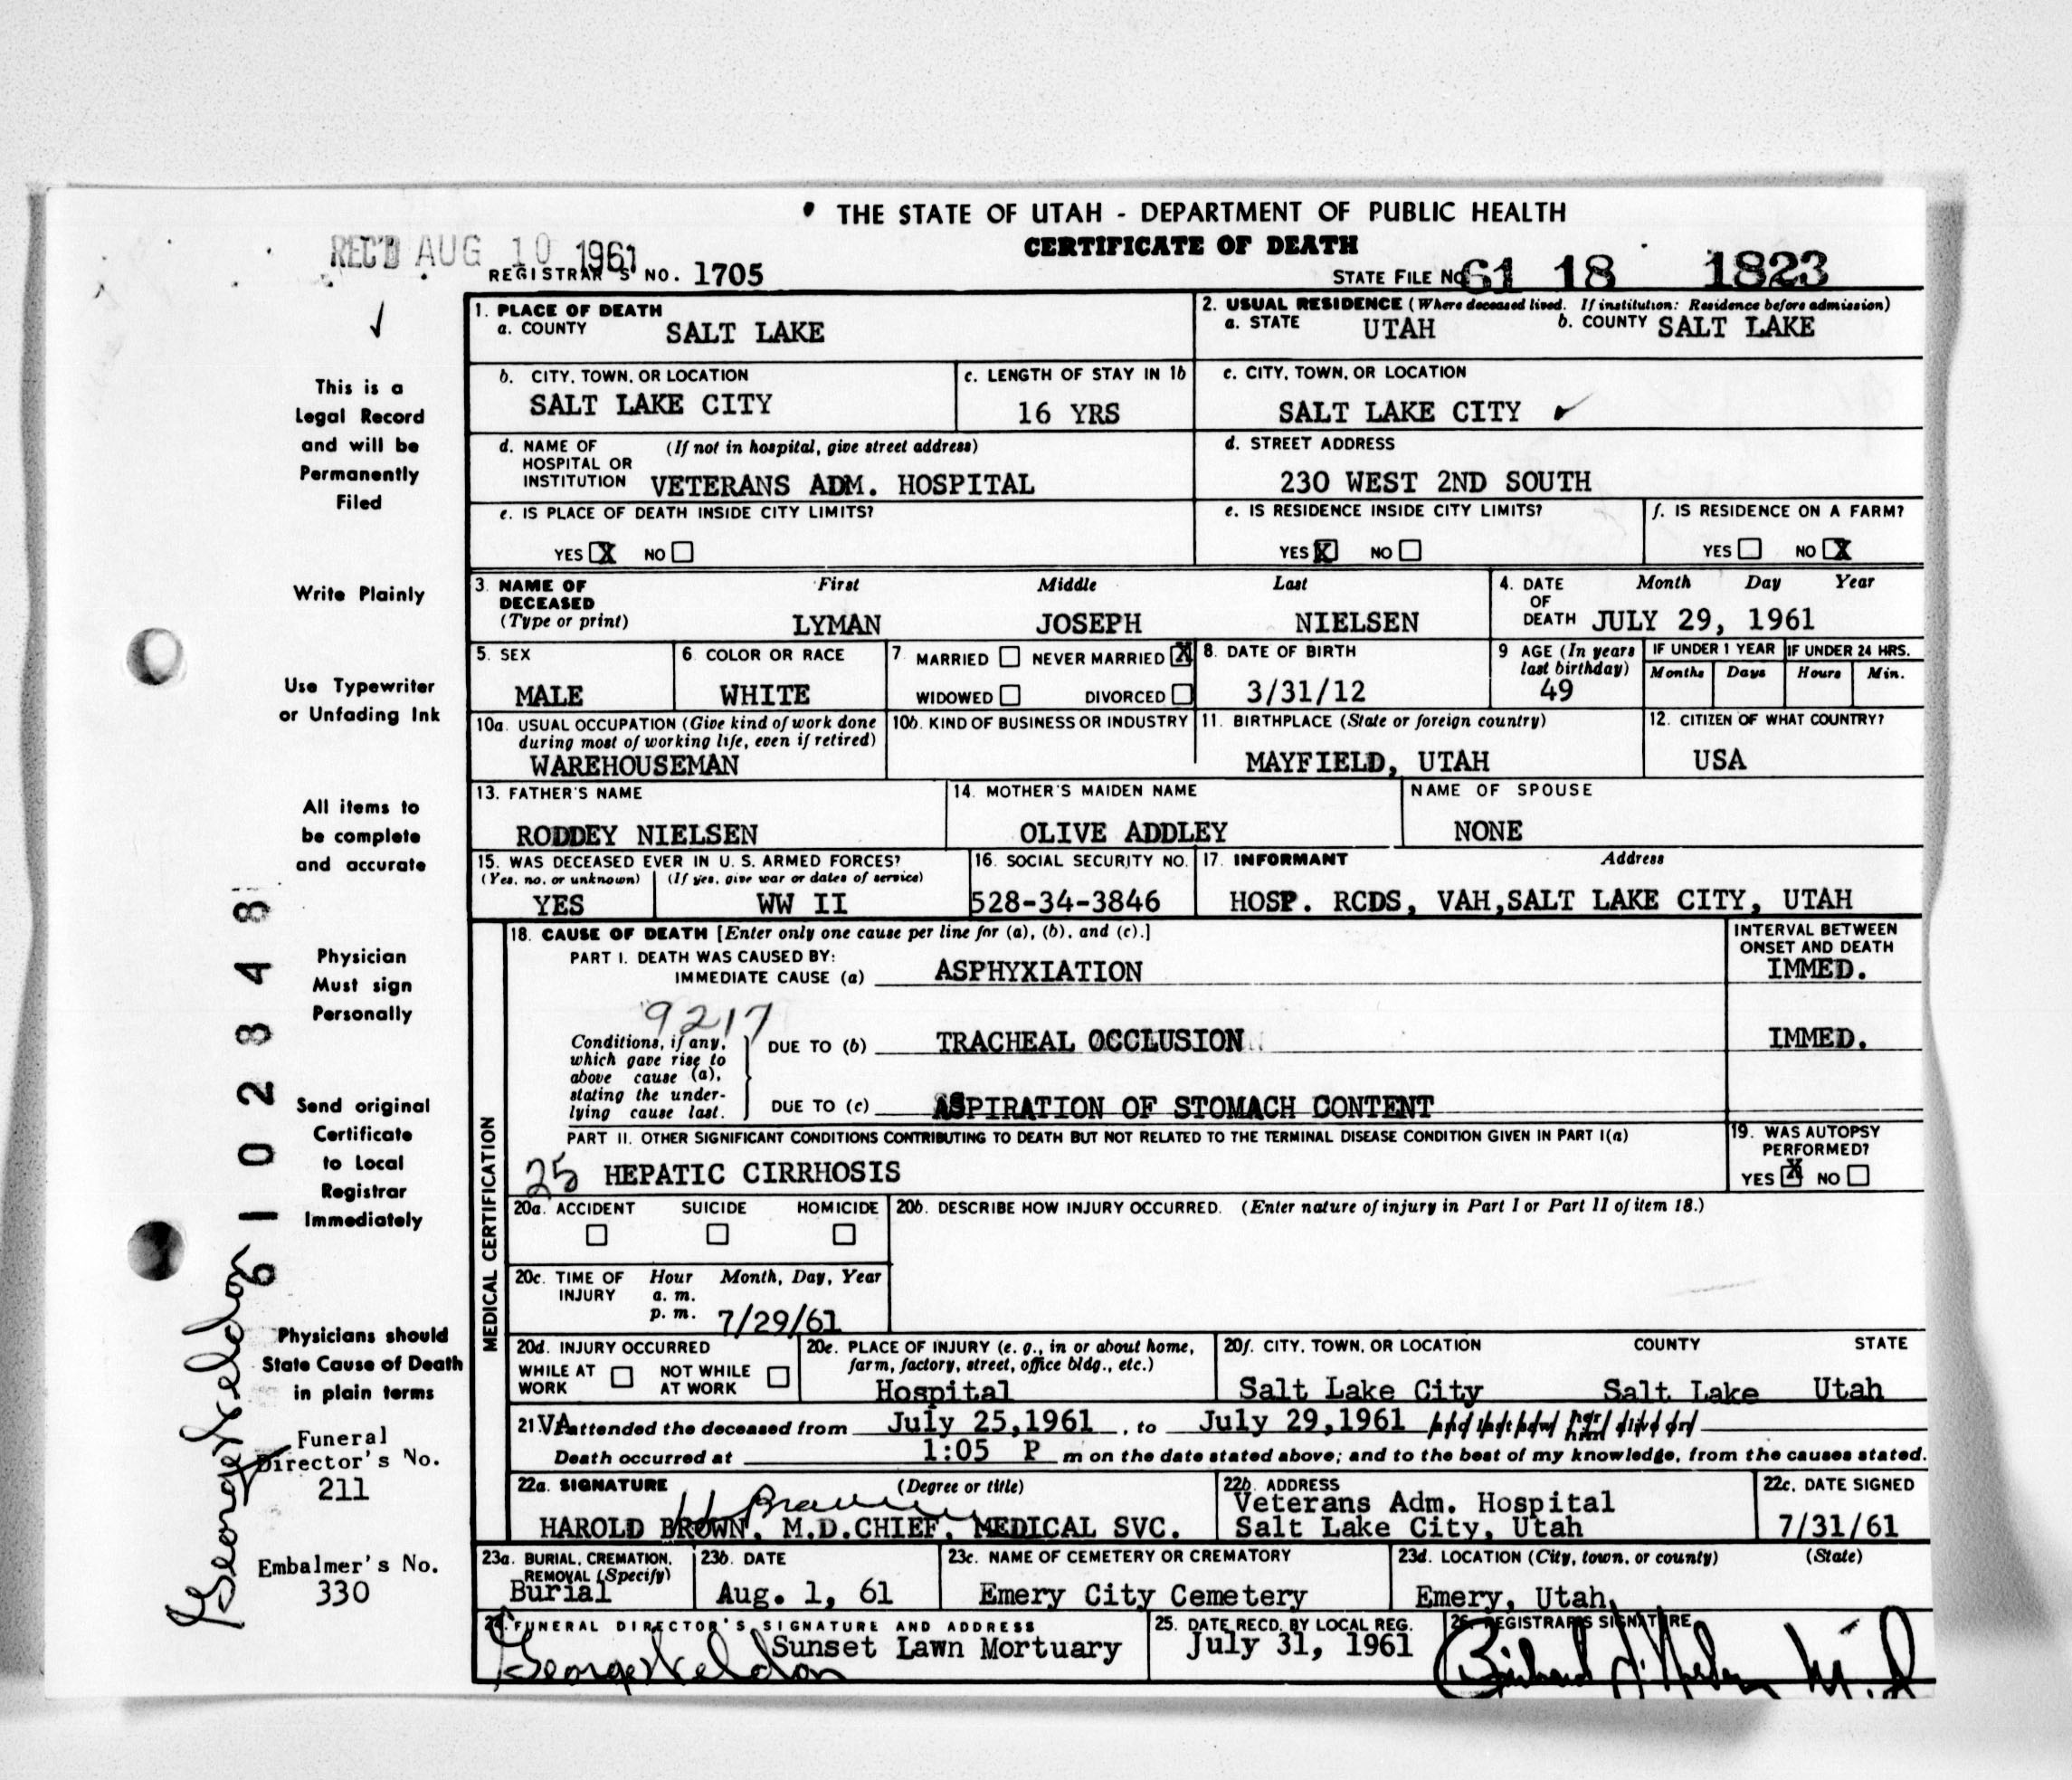 THE STATE OF UTAH - DEPARTMENT OF PUBLIC HEALTH
CERTIFICATE OF DEATH
REC'D AUG 10 1961
REGISTRAR'S NO. 1705
STATE FILE NO. 61 18 1823
This is a
Legal Record
and will be
Permanently
Filed
Write Plainly
Use Typewriter
or Unfading Ink
All items to
be complete
and accurate
Physician
Must sign
Personally
Send original
Certificate
to Local
Registrar
Immediately
Physicians should
State Cause of Death
in plain terms
Funeral
Director's No.
211
Embalmer's No.
330
61023848
George Keldon
1. PLACE OF DEATH
a. COUNTY SALT LAKE
2. USUAL RESIDENCE (Where deceased lived. If institution: Residence before admission)
a. STATE UTAH b. COUNTY SALT LAKE
b. CITY, TOWN, OR LOCATION
SALT LAKE CITY
c. LENGTH OF STAY IN 1b
16 YRS
c. CITY, TOWN, OR LOCATION
SALT LAKE CITY
d. NAME OF (If not in hospital, give street address)
HOSPITAL OR
INSTITUTION VETERANS ADM. HOSPITAL
d. STREET ADDRESS
230 WEST 2ND SOUTH
e. IS PLACE OF DEATH INSIDE CITY LIMITS?
YES X NO
e. IS RESIDENCE INSIDE CITY LIMITS?
YES X NO
f. IS RESIDENCE ON A FARM?
YES NO X
3. NAME OF DECEASED (Type or print)
First Middle Last
LYMAN JOSEPH NIELSEN
4. DATE OF DEATH Month Day Year
JULY 29, 1961
5. SEX
MALE
6. COLOR OR RACE
WHITE
7. MARRIED NEVER MARRIED X
WIDOWED DIVORCED
8. DATE OF BIRTH
3/31/12
9 AGE (In years last birthday)
49
IF UNDER 1 YEAR
Months Days
IF UNDER 24 HRS.
Hours Min.
10a. USUAL OCCUPATION (Give kind of work done
during most of working life, even if retired)
WAREHOUSEMAN
10b. KIND OF BUSINESS OR INDUSTRY
11. BIRTHPLACE (State or foreign country)
MAYFIELD, UTAH
12. CITIZEN OF WHAT COUNTRY?
USA
13. FATHER'S NAME
RODDEY NIELSEN
14. MOTHER'S MAIDEN NAME
OLIVE ADDLEY
NAME OF SPOUSE
NONE
15. WAS DECEASED EVER IN U. S. ARMED FORCES?
(Yes, no, or unknown) (If yes, give war or dates of service)
YES WW II
16. SOCIAL SECURITY NO.
528-34-3846
17. INFORMANT Address
HOSP. RCDS, VAH,SALT LAKE CITY, UTAH
MEDICAL CERTIFICATION
18. CAUSE OF DEATH [Enter only one cause per line for (a), (b), and (c).]
PART I. DEATH WAS CAUSED BY:
IMMEDIATE CAUSE (a) ASPHYXIATION
INTERVAL BETWEEN
ONSET AND DEATH
IMMED.
9217
Conditions, if any,
which gave rise to
above cause (a),
stating the under-
lying cause last.
DUE TO (b) TRACHEAL OCCLUSION IMMED.
DUE TO (c) ASPIRATION OF STOMACH CONTENT
PART II. OTHER SIGNIFICANT CONDITIONS CONTRIBUTING TO DEATH BUT NOT RELATED TO THE TERMINAL DISEASE CONDITION GIVEN IN PART I(a)
25 HEPATIC CIRRHOSIS
19. WAS AUTOPSY
PERFORMED?
YES X NO
20a. ACCIDENT SUICIDE HOMICIDE
20b. DESCRIBE HOW INJURY OCCURRED. (Enter nature of injury in Part I or Part II of item 18.)
20c. TIME OF INJURY Hour Month, Day, Year
a. m.
p. m. 7/29/61
20d. INJURY OCCURRED
WHILE AT WORK NOT WHILE AT WORK
20e. PLACE OF INJURY (e. g., in or about home,
farm, factory, street, office bldg., etc.)
Hospital
20f. CITY, TOWN, OR LOCATION COUNTY STATE
Salt Lake City Salt Lake Utah
21. VA attended the deceased from July 25,1961, to July 29,1961
Death occurred at 1:05 P m on the date stated above; and to the best of my knowledge, from the causes stated.
22a. SIGNATURE (Degree or title)
H Brown
HAROLD BROWN, M.D.CHIEF, MEDICAL SVC.
22b. ADDRESS
Veterans Adm. Hospital
Salt Lake City, Utah
22c. DATE SIGNED
7/31/61
23a. BURIAL, CREMATION,
REMOVAL (Specify)
Burial
23b. DATE
Aug. 1, 61
23c. NAME OF CEMETERY OR CREMATORY
Emery City Cemetery
23d. LOCATION (City, town, or county) (State)
Emery, Utah
24. FUNERAL DIRECTOR'S SIGNATURE AND ADDRESS
Sunset Lawn Mortuary
George Keldon
25. DATE RECD. BY LOCAL REG.
July 31, 1961
26. REGISTRAR'S SIGNATURE